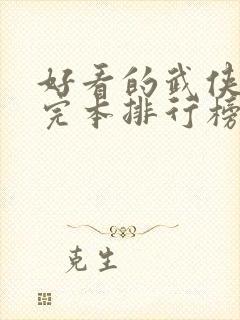 好看的武侠
完本排行榜
克生